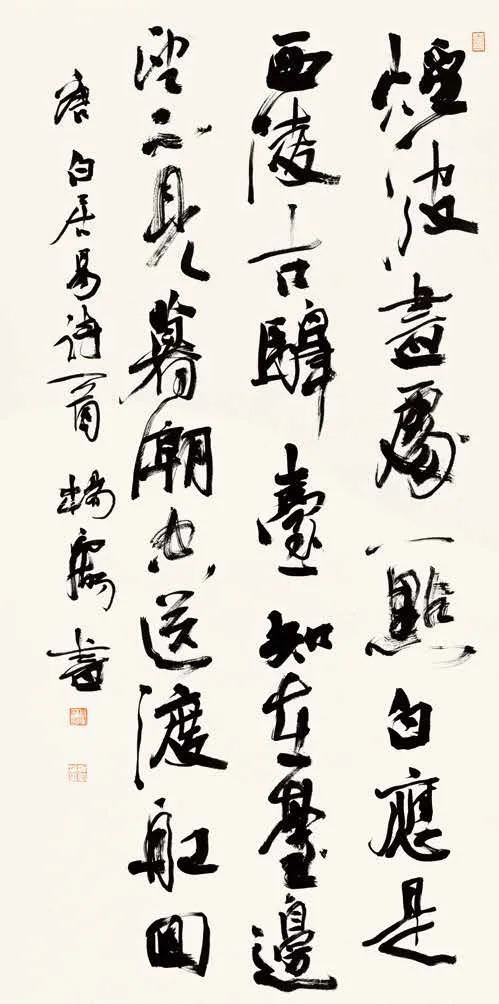 煙波盡處一點白應是
西陵古驛臺知在臺邊
望不見暮潮空送渡舡回
唐白居易詩一首 楊 書